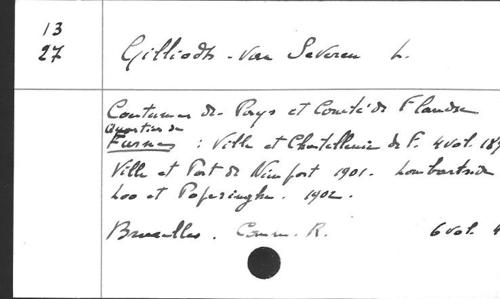 13
27
Gilliodts - van Severen L.
Coutumes des Pays et Comté de Flandre
Quartier de
Furnes : Ville et Chatellenie de F. 4 vol. 189
Ville et Port de Nieuport 1901. Lombartside
Loo et Poperinghe. 1902.
Bruxelles. Comm. R. 6 vol. 4